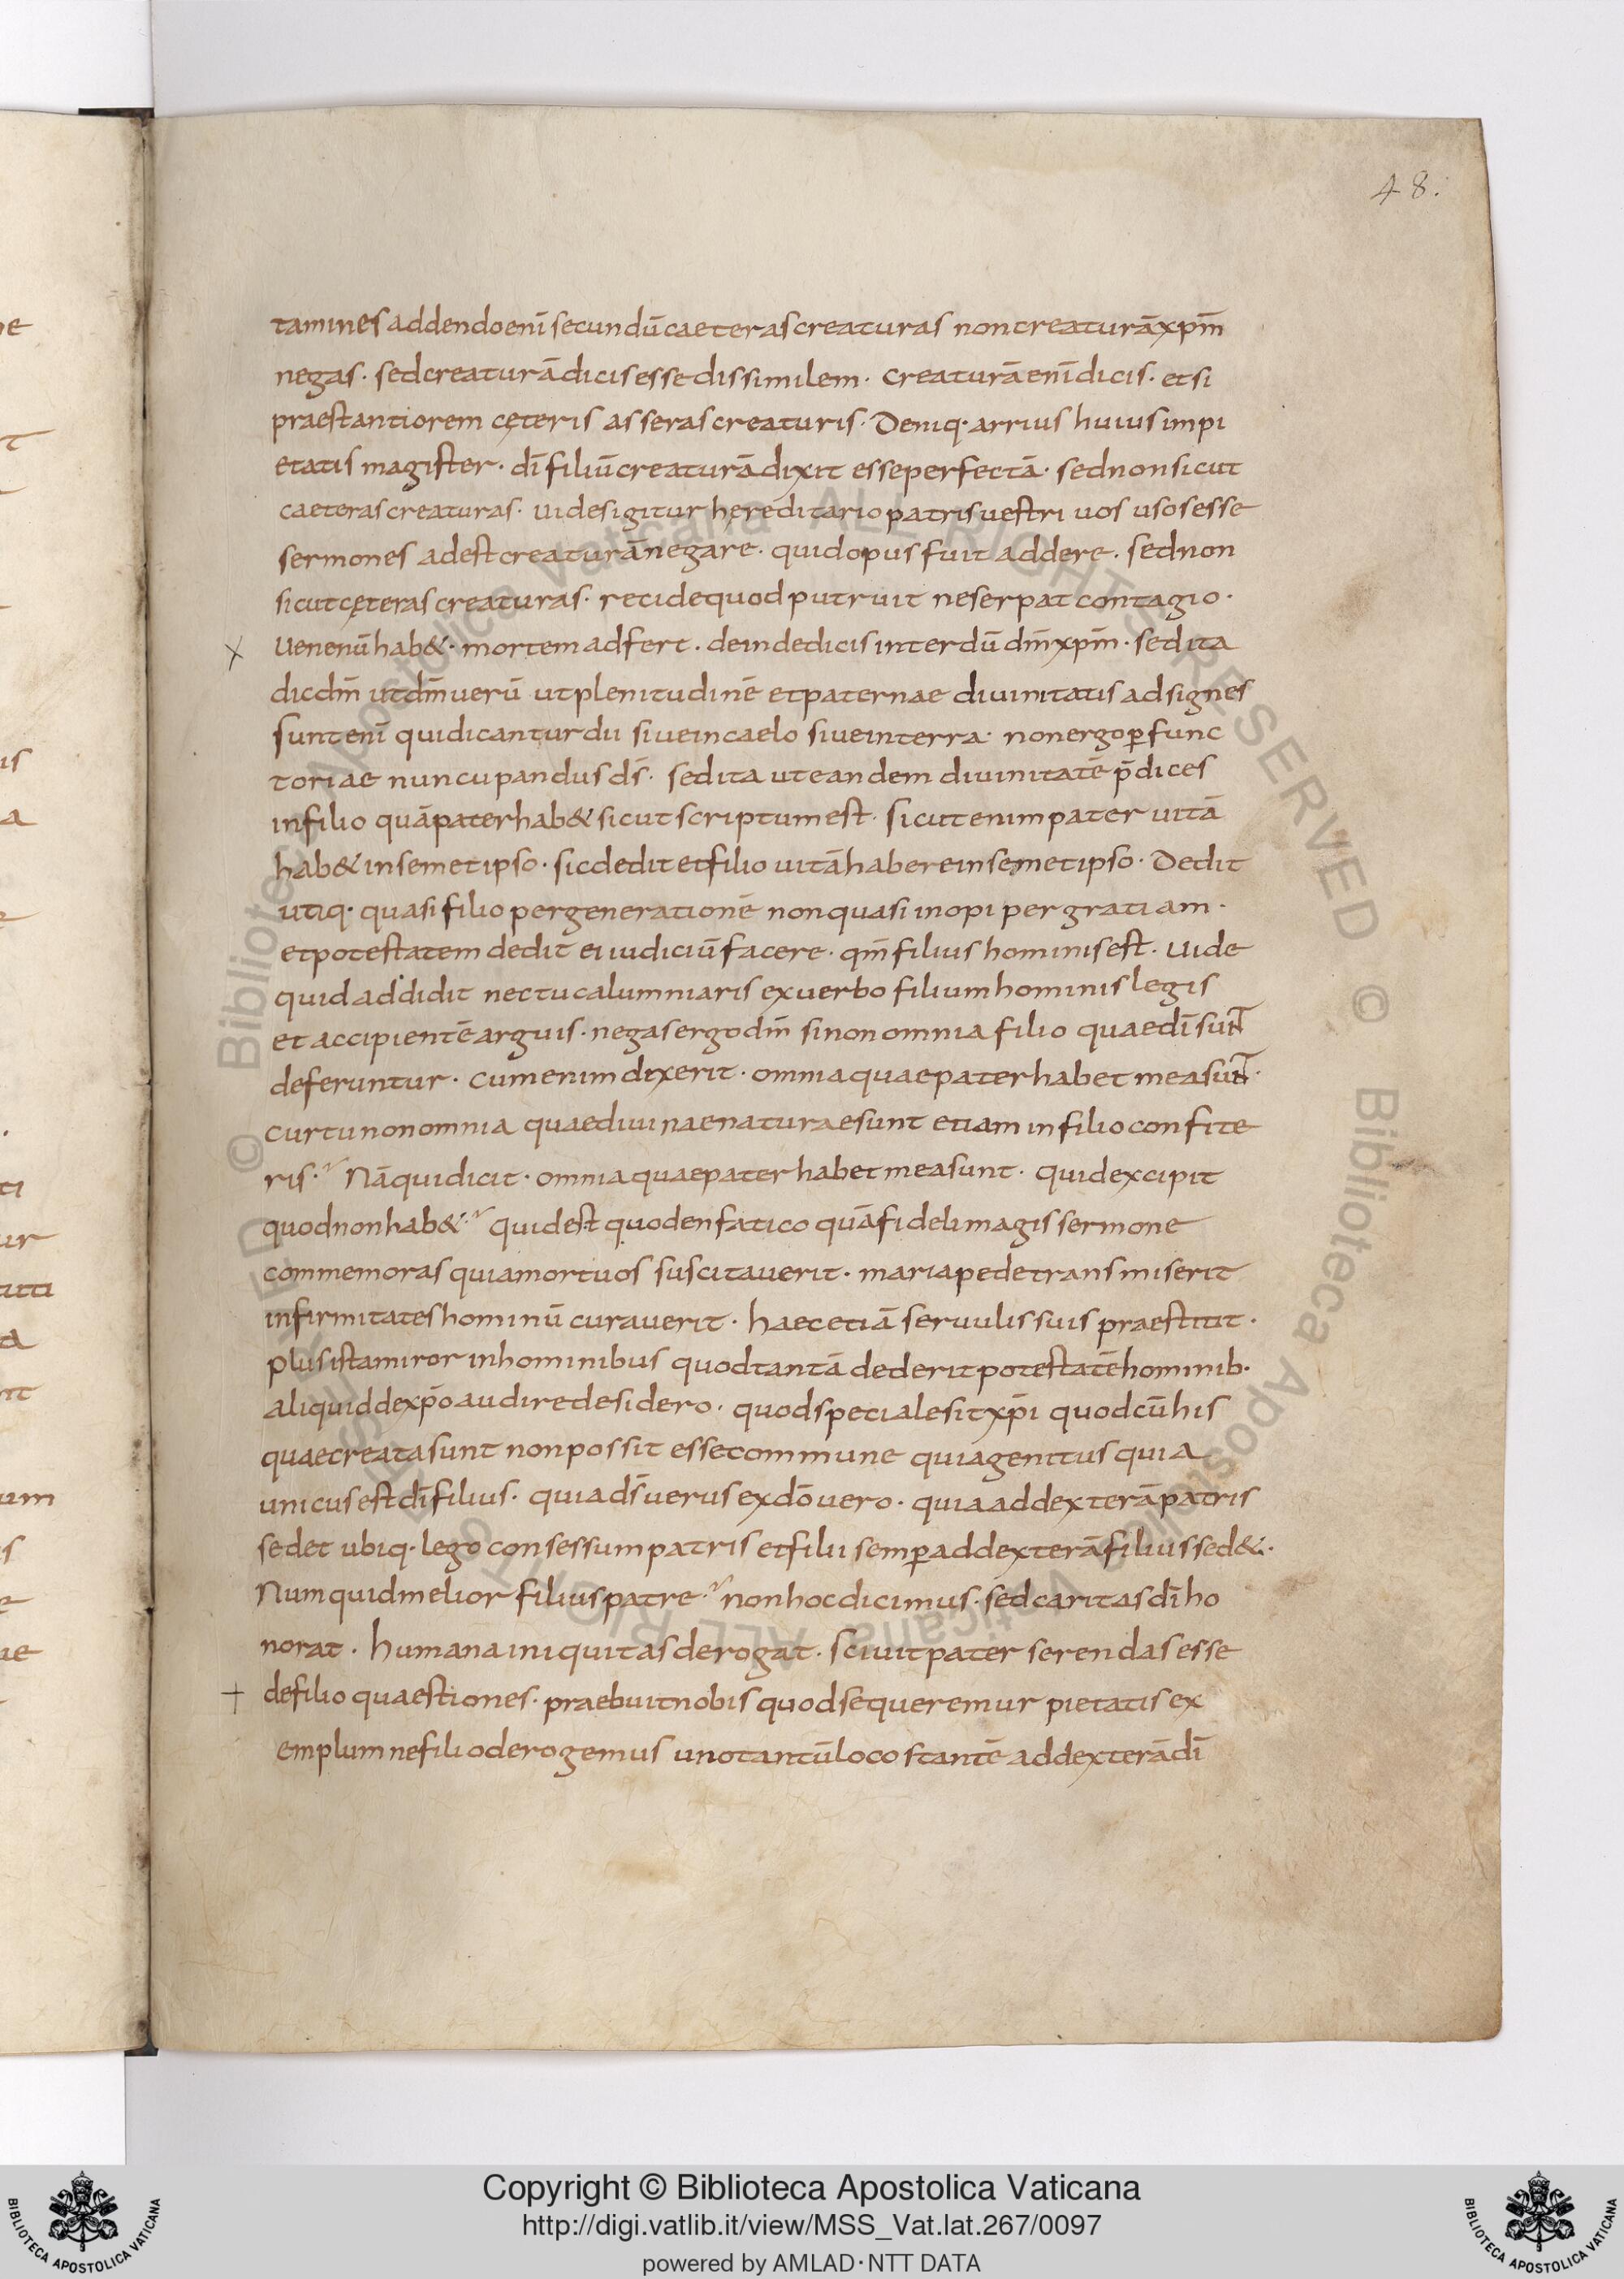 48.
tamines addendo enī secundū caeteras creaturas non creaturā xp̄m
negas · sed creaturā dicis esse dissimilem · creaturā enī dicis · etsi
praestantiorem cęteris asseras creaturis · Deniq· arrius huius impi
etatis magister · dī filiū creaturā dixit esse perfectā · sed non sicut
caeteras creaturas · uides igitur hęreditario patris uestri uos usos esse
sermones adest creaturā negare · quid opus fuit addere · sed non
sicut cęteras creaturas · recide quod putruit ne serpat contagio ·
x uenenū hab& · mortem adfert · deinde dicis interdū dm̄ xp̄m · sed ita
dic dm̄ ut dm̄ uerū ut plenitudinē et paternae diuinitatis adsignes
sunt enī qui dicantur dii siue in caelo siue in terra · non ergo ꝑfunc
toriae nuncupandus ds̄ · sed ita ut eandem diuinitatē p̄dices
in filio quā pater hab& sicut scriptum est · sicut enim pater uitā
hab& in semetipso · sic dedit et filio uitā habere in semetipso · Dedit
utiq· quasi filio per generationē non quasi inopi per gratiam ·
et potestatem dedit ei iudiciū facere · qm̄ filius hominis est · uide
quid addidit nec tu calumniaris ex uerbo filium hominis legis
et accipientē arguis · negas ergo dm̄ si non omnia filio quae dī sunt
deferuntur · cum enim dixerit · omnia quae pater habet mea sunt ·
cur tu non omnia quae diuinae naturae sunt etiam in filio confite
ris · Nā qui dicit · omnia quae pater habet mea sunt · quid excipit
quod non hab& · quid est quod enfatico quā fideli magis sermone
commemoras quia mortuos suscitauerit · maria pede transmiserit
infirmitates hominū curauerit · haec etiā seruulis suis praestitit ·
plus ista miror in hominibus quod tantā dederit potestatē hominib·
aliquid de xp̄o audire desidero · quod speciale sit xp̄i quod cū his
quae creata sunt non possit esse commune quia genitus quia
unicus est dī filius · quia ds̄ uerus ex dō uero · quia ad dexterā patris
sedet ubiq· lego consessum patris et filii semꝑ ad dexterā filius sed& ·
Numquid melior filius patre · non hoc dicimus · sed caritas dī ho
norat · humana iniquitas derogat · sciuit pater serendas esse
+ de filio quaestiones · praebuit nobis quod sequeremur pietatis ex
emplum ne filio derogemus uno tantū loco stantē ad dexterā dī
Copyright © Biblioteca Apostolica Vaticana
http://digi.vatlib.it/view/MSS_Vat.lat.267/0097
powered by AMLAD·NTT DATA
BIBLIOTECA APOSTOLICA VATICANA
BIBLIOTECA APOSTOLICA VATICANA